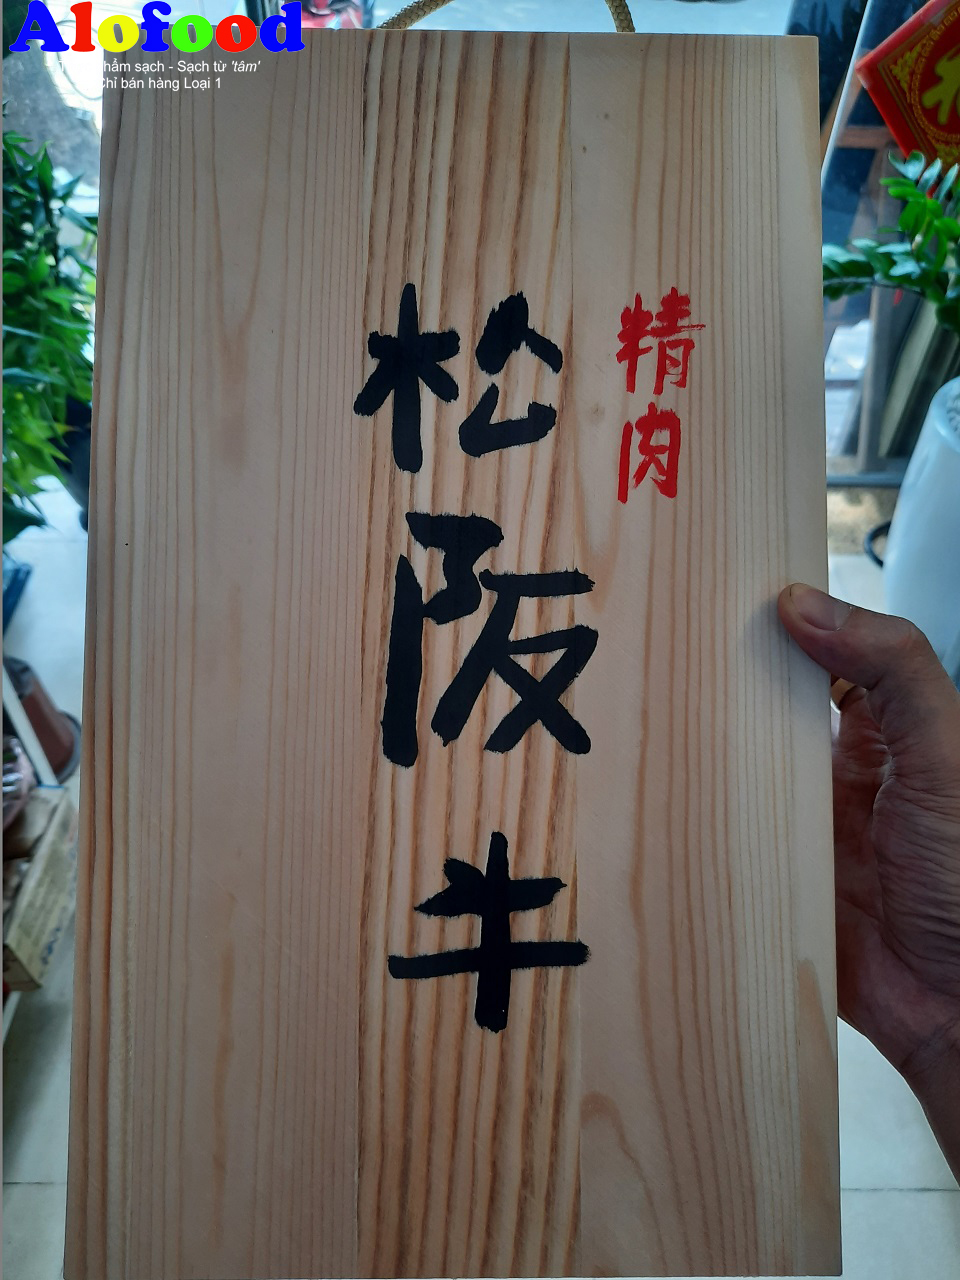 Alofood
hẩm sạch - Sạch từ 'tâm'
Chỉ bán hàng Loại 1
精肉
松阪牛